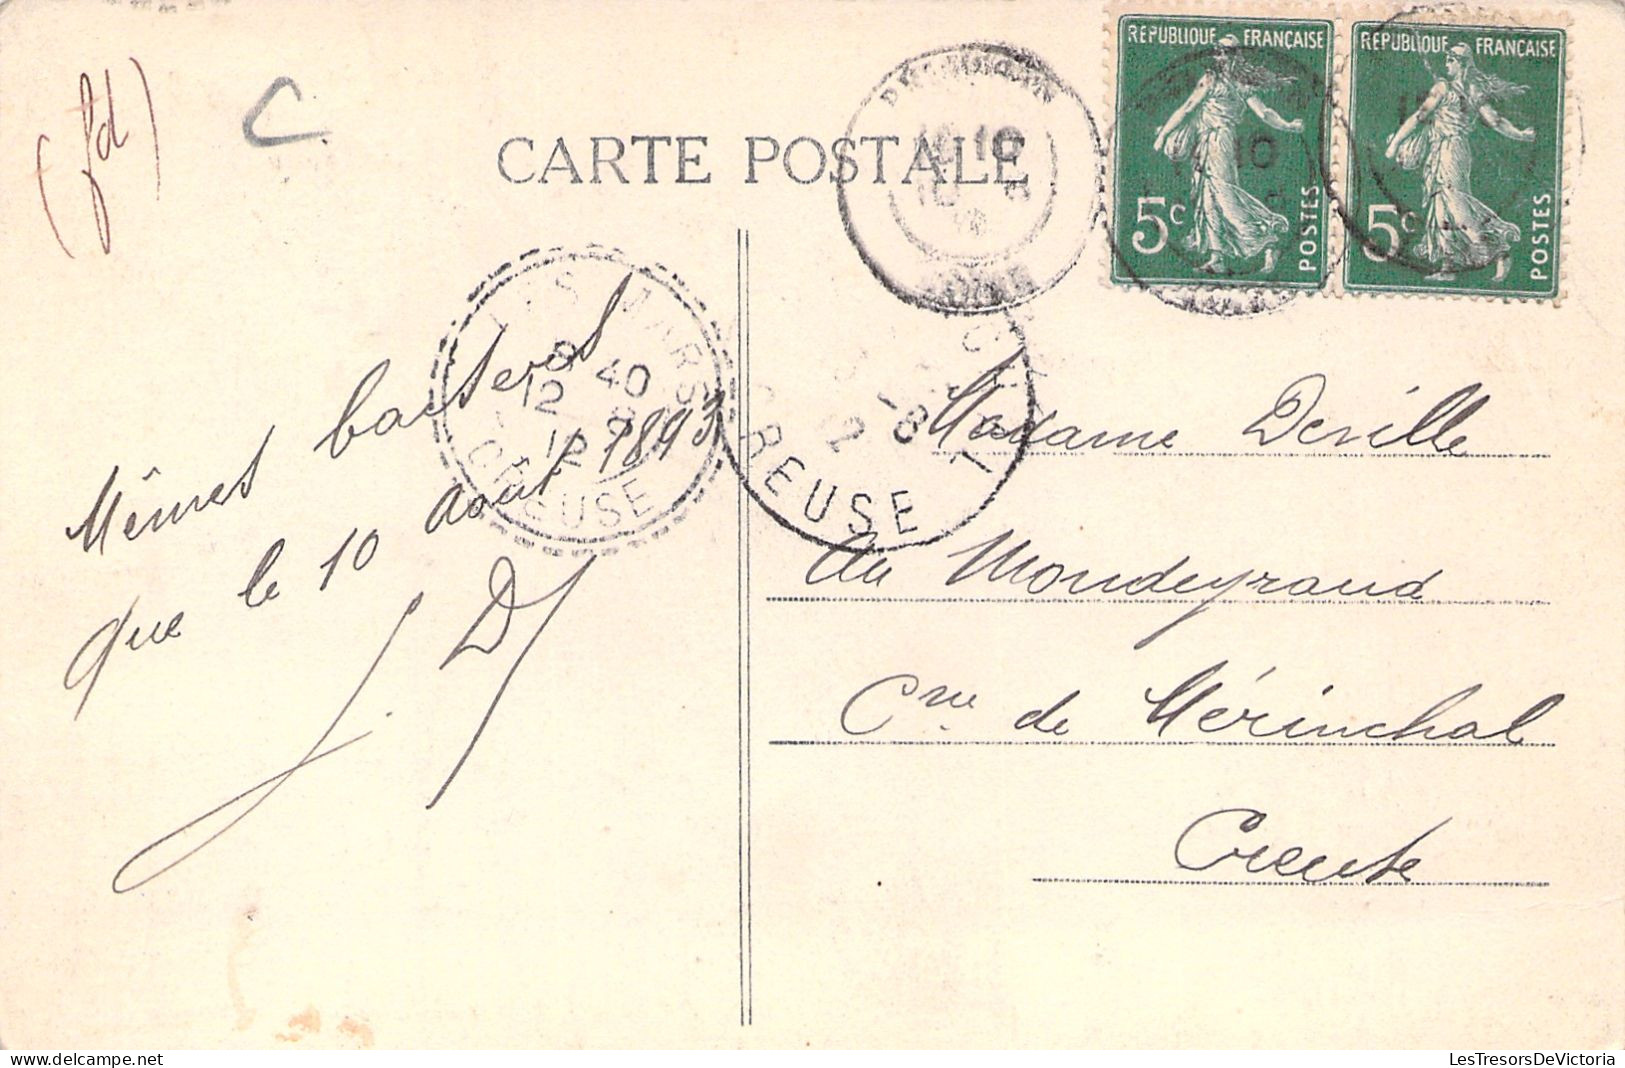 (fd)
C
CARTE POSTALE
REPUBLIQUE FRANÇAISE
5c
POSTES
REPUBLIQUE FRANÇAISE
5c
POSTES
10
LES MARS
8 40
12 8
12
CREUSE
12 -8
CREUSE
Mêmes baisers
que le 10 Août 1893
J. D
Madame Deville
au Mondeyraud
Cne de Mérinchal
Creuse
LesTresorsDeVictoria